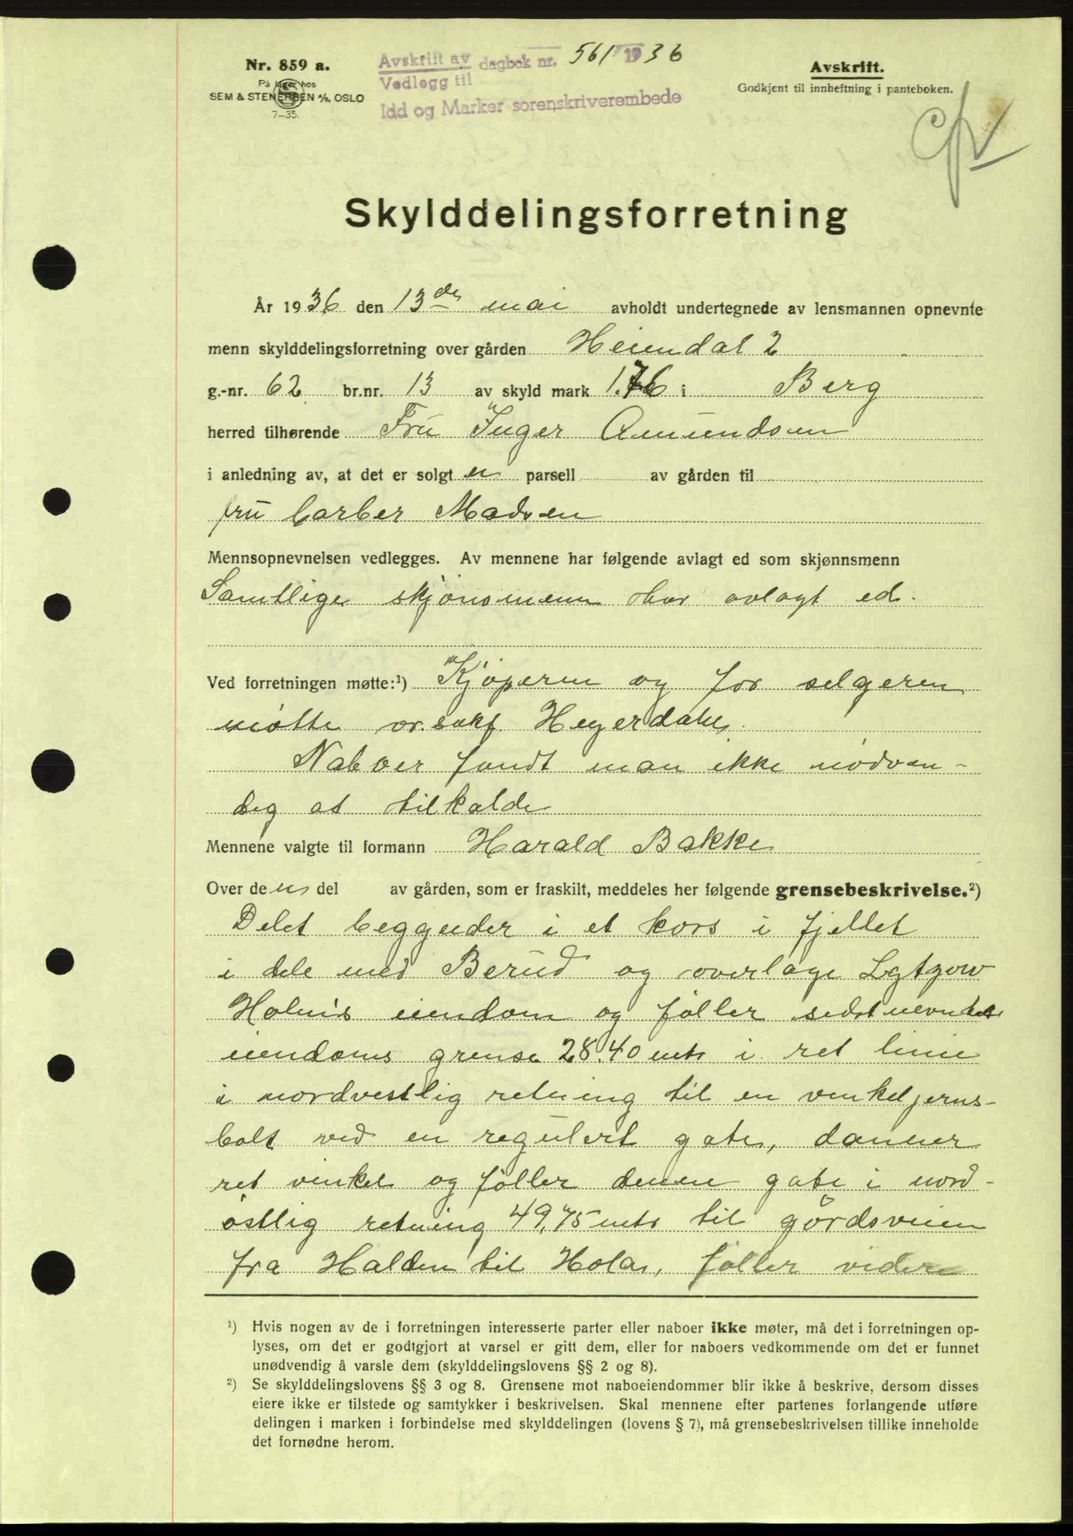 Nr. 859 a.
På lager hos
SEM & STENERSEN A/S, OSLO
7-35.
Avskrift av dagbok nr. 561 1936
Vedlegg til
Idd og Marker sorenskriverembede
Avskrift.
Godkjent til innheftning i panteboken.
Skylddelingsforretning
År 1936 den 13de mai avholdt undertegnede av lensmannen opnevnte
menn skylddelingsforretning over gården Heiendal 2
g.-nr. 62 br.nr. 13 av skyld mark 1.76 i Berg
herred tilhørende Fru Inger Amundsen
i anledning av, at det er solgt en parsell av gården til
fru Madsen
Mennsopnevnelsen vedlegges. Av mennene har følgende avlagt ed som skjønnsmenn
Samtlige skjønsmenn har avlagt ed.
Ved forretningen møtte:¹) Kjøperen og for selgeren
møtte Heyerdahl.
Naboer fandt man ikke nødven-
dig at tilkalde
Mennene valgte til formann Harald Bakke
Over den del av gården, som er fraskilt, meddeles her følgende grensebeskrivelse.²)
Delet begynder i et kors i fjellet
i dele med Berud og
Holms eiendom og føller sidstnevnte
eiendoms grense 28.40 mtr i ret linie
i nordvestlig retning til en vinkeljerns-
bolt ved en regulert gate, danner
ret vinkel og føller denne gate i nord-
østlig retning 49,75 mtr til gårdsveien
fra Halden til Hola, føller videre
¹) Hvis nogen av de i forretningen interesserte parter eller naboer ikke møter, må det i forretningen op-
lyses, om det er godtgjort at varsel er gitt dem, eller for naboers vedkommende om det er funnet
unødvendig å varsle dem (skylddelingslovens §§ 2 og 8).
²) Se skylddelingslovens §§ 3 og 8. Grensene mot naboeiendommer blir ikke å beskrive, dersom disses
eiere ikke er tilstede og samtykker i beskrivelsen. Skal mennene efter partenes forlangende utføre
delingen i marken i forbindelse med skylddelingen (lovens § 7), må grensebeskrivelsen tillike inneholde
det fornødne herom.